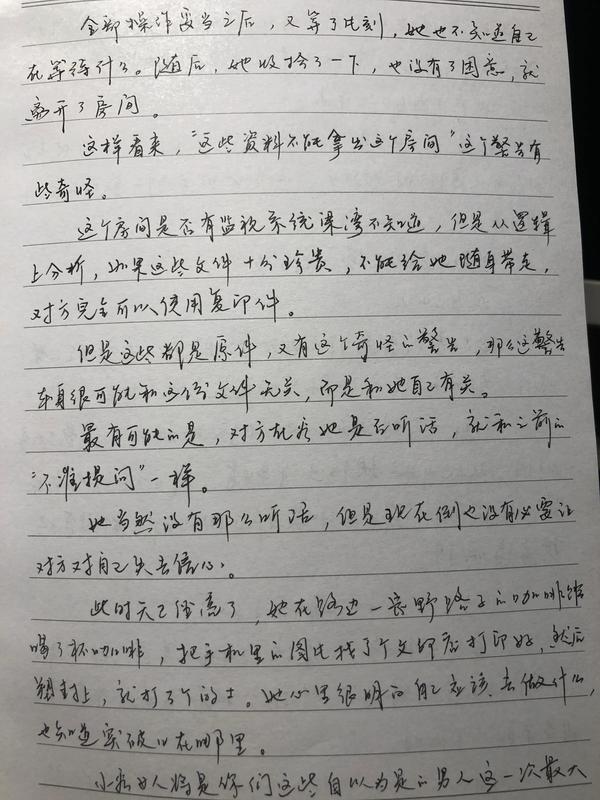 全部操作妥当之后，又等了片刻，她也不知道自己
在等待什么。随后，她收拾了一下，也没有了困意，就
离开了房间。
这样看来，“这些资料不能拿出这个房间”这个警告有
些奇怪。
这个房间是否有监视系统梁湾不知道，但是从逻辑
上分析，如果这些文件十分珍贵，不能给她随身带走，
对方完全可以使用复印件。
但是这些都是原件，又有这个奇怪的警告，那么这警告
本身很可能和这份文件无关，而是和她自己有关。
最有可能的是，对方在看她是否听话，就和之前的
“不准提问”一样。
她当然没有那么听话，但是现在倒也没有必要让
对方对自己失去信心。
此时天已经亮了，她在路边一家野路子的咖啡馆
喝了杯咖啡，把手机里的图片找了个文印店打印好，然后
塑封上，就打了个的士。她心里很明白自己应该去做什么，
也知道突破口在哪里。
小看女人将是你们这些自以为是的男人这一次最大